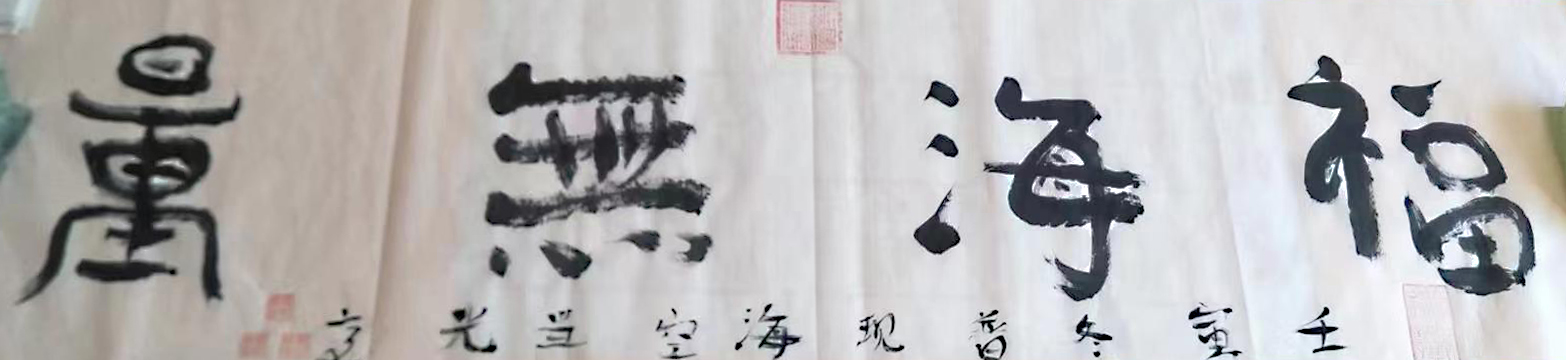 福海無量
壬寅冬普现海空光